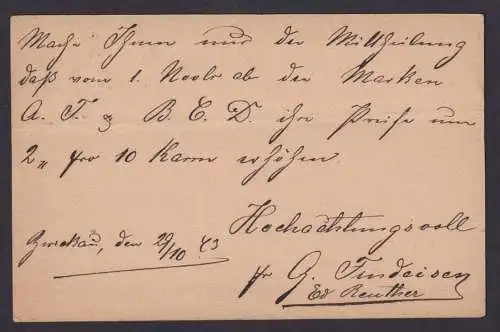 Mache Ihnen nur die Mittheilung
daß vom 1. Novbr ab die Marken
A. T. & B. E. D. ihre Preise um
2 „ pro 10 Karrn erhöhen.
Hochachtungsvoll
Zwickau, den 29/10. 83
pr G. Findeisen
Ed Reuther